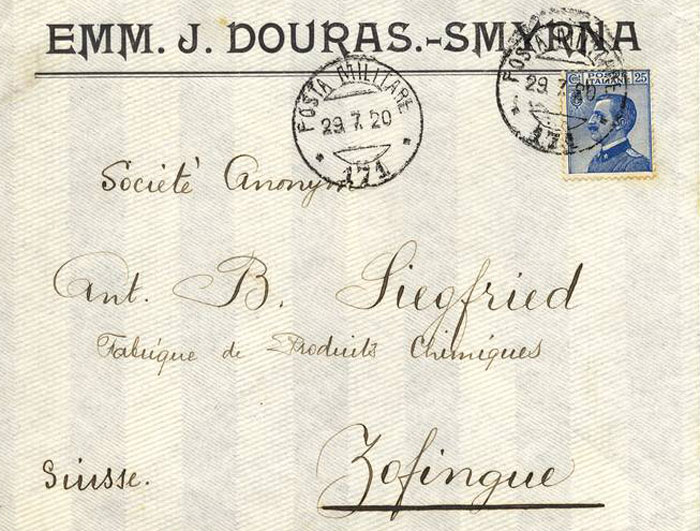 EMM. J. DOURAS.-SMYRNA
POSTA MILITARE
29.7.20
171
POSTA MILITARE
29.7.20
171
POSTE ITALIANE 25
Société Anonyme
Ant. B. Siegfried
Fabrique de Produits Chimiques
Suisse.
Zofingue